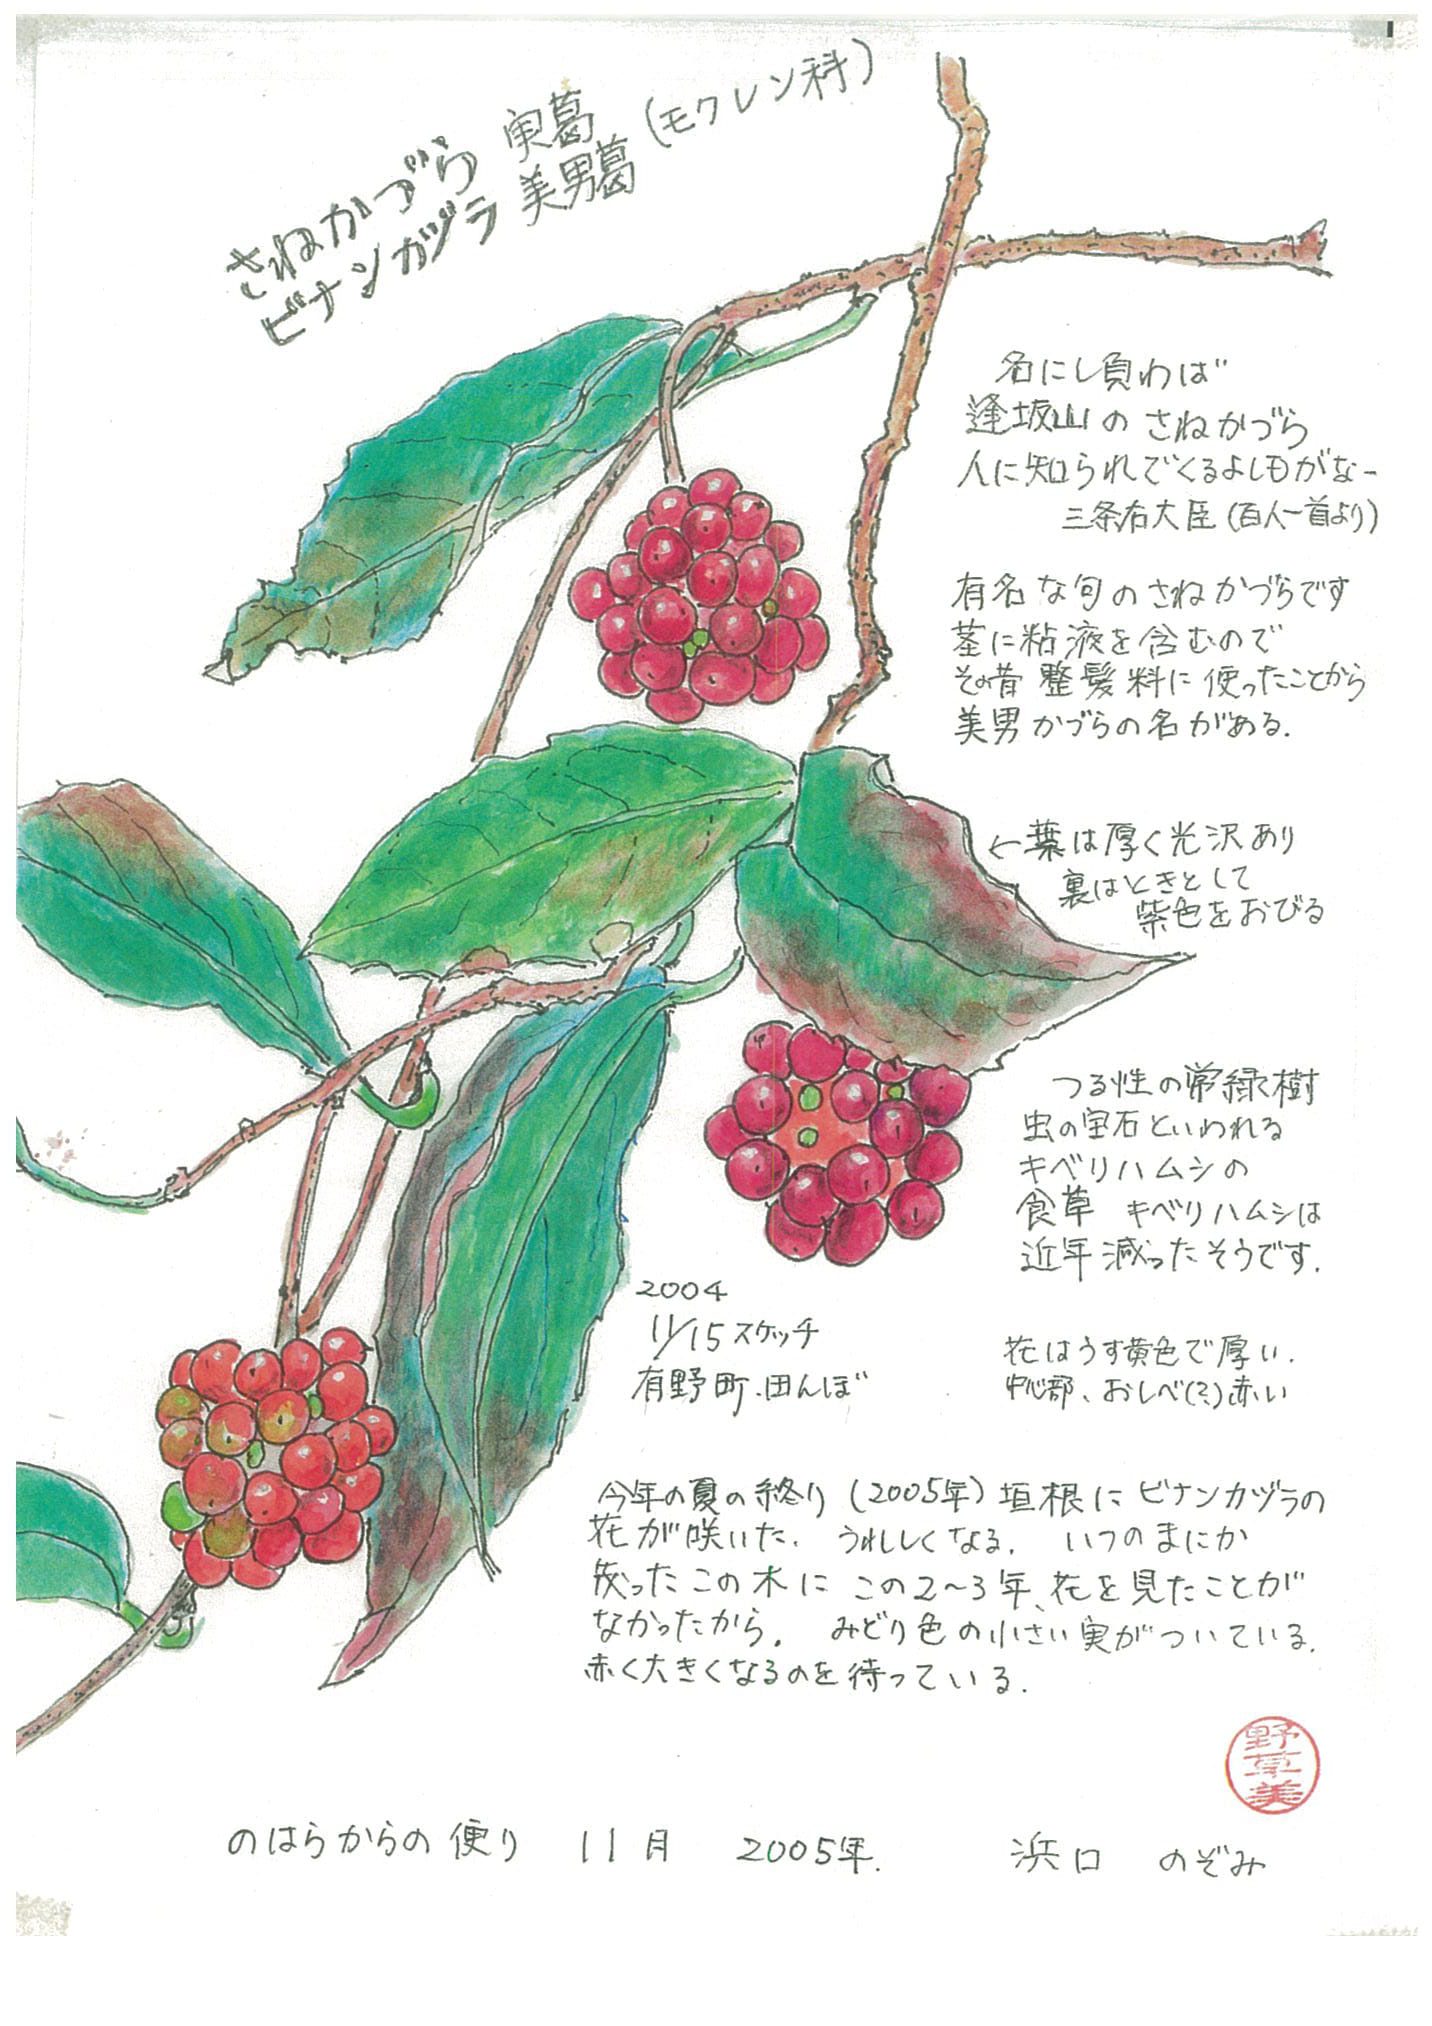 さねかづら 実葛
ビナンカヅラ 美男葛 (モクレン科)
名にし負わば
逢坂山の さねかづら
人に知られでくるよしもがな-
三条右大臣 (百人一首より)
有名な句のさねかづらです
茎に粘液を含むので
その昔 整髪料に使ったことから
美男かづらの名がある.
←葉は厚く光沢あり
裏はときとして
紫色をおびる
つる性の常緑樹
虫の宝石といわれる
キベリハムシの
食草 キベリハムシは
近年減ったそうです.
2004
11/15 スケッチ
有野町.田んぼ
花はうす黄色で厚い.
中心部、おしべ(?)赤い
今年の夏の終り (2005年) 垣根にビナンカヅラの
花が咲いた. うれしくなる. いつのまにか
茂ったこの木に この2~3年、花を見たことが
なかったから. みどり色の小さい実がついている.
赤く大きくなるのを待っている.
野草美
のはらからの便り 11月 2005年. 浜口 のぞみ